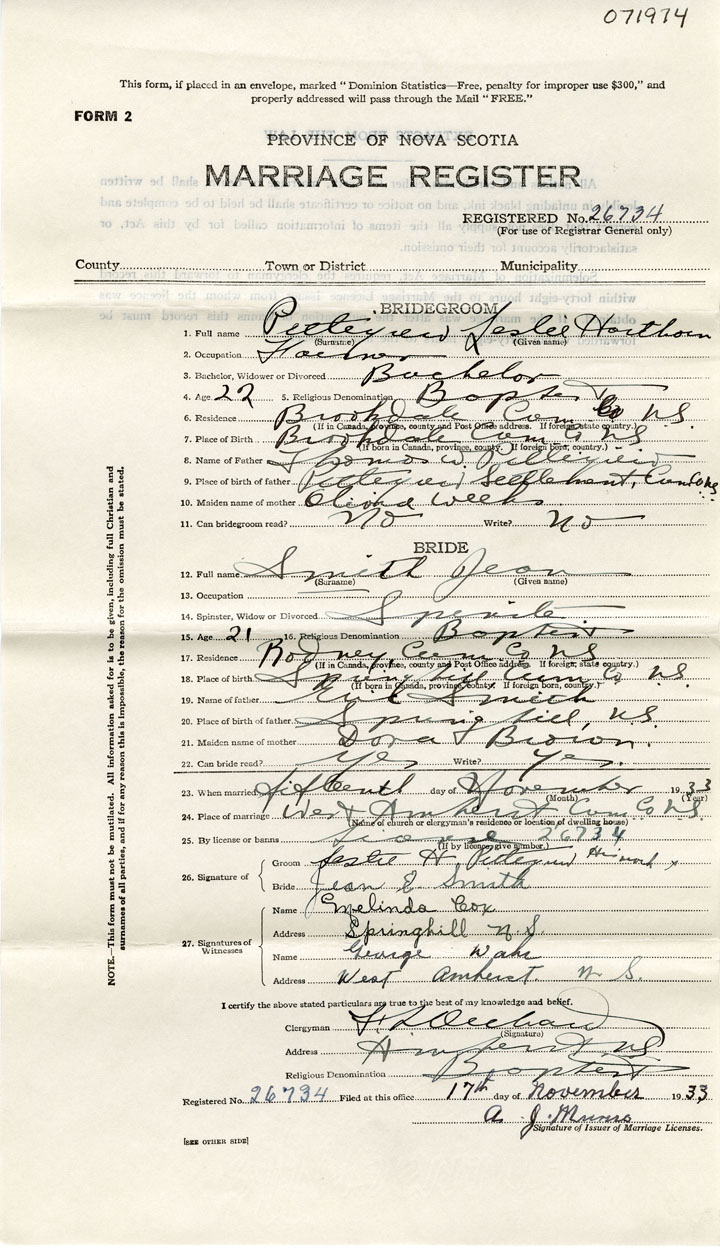 071974
This form, if placed in an envelope, marked "Dominion Statistics—Free, penalty for improper use $300," and
properly addressed will pass through the Mail "FREE."
FORM 2
PROVINCE OF NOVA SCOTIA
MARRIAGE REGISTER
REGISTERED No. 26734
(For use of Registrar General only)
County Town or District Municipality
BRIDEGROOM
1. Full name Pettigrew Leslie Harthorn
(Surname) (Given name)
2. Occupation
3. Bachelor, Widower or Divorced Bachelor
4. Age 22 5. Religious Denomination Baptist
6. Residence Brookdale Cum Co N.S.
(If in Canada, province, county and Post Office address. If foreign, state country.)
7. Place of Birth Brookdale Cum Co N.S.
(If born in Canada, province, county. If foreign born, country.)
8. Name of Father Thomas W Pettigrew
9. Place of birth of father Pettigrew Settlement, Cum Co N.S.
10. Maiden name of mother Weeks
11. Can bridegroom read? No Write? No
BRIDE
12. Full name Smith Jean
(Surname) (Given name)
13. Occupation
14. Spinster, Widow or Divorced Spinster
15. Age 21 16. Religious Denomination Baptist
17. Residence Rodney, Cum Co N.S.
(If in Canada, province, county and Post Office address. If foreign, state country.)
18. Place of birth Springhill Cum Co N.S.
(If born in Canada, province, county. If foreign born, country.)
19. Name of father Smith
20. Place of birth of father Springhill, N.S.
21. Maiden name of mother Dora Brown.
22. Can bride read? Yes Write? Yes.
23. When married fifteenth day of November 1933
(Month) (Year)
24. Place of marriage West Amherst Cum Co N.S.
(Name of church or clergyman's residence or location of dwelling house)
25. By license or banns License 26734
(If by license, give number.)
26. Signature of
Groom Leslie H. Pettigrew His mark x
Bride Jean E Smith
27. Signatures of Witnesses
Name Melinda Cox
Address Springhill N.S.
Name George
Address West Amherst. N.S.
I certify the above stated particulars are true to the best of my knowledge and belief.
Clergyman Orchard
(Signature)
Address Amherst NS
Religious Denomination Baptist
Registered No. 26734 Filed at this office 17th day of November 1933
A. J. Munro
Signature of Issuer of Marriage Licenses.
[SEE OTHER SIDE]
NOTE.—This form must not be mutilated. All information asked for is to be given, including full Christian and
surnames of all parties, and if for any reason this is impossible, the reason for the omission must be stated.